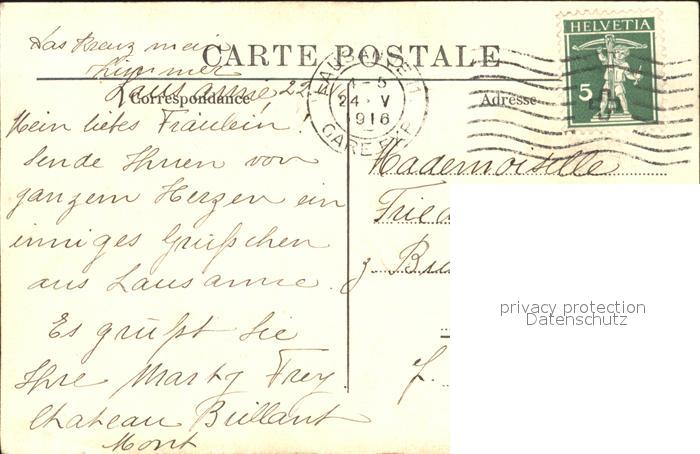 Das Kreuz mein
Zimmer
CARTE POSTALE
Lausanne, 22. V.
Correspondance
Adresse
LAUSANNE 1
4-5
24 V
1916
GARE EXP.
HELVETIA
5
Mein liebes Fräulein!
Sende Ihnen von
ganzem Herzen ein
inniges Grüßchen
aus Lausanne.
Es grüßt Sie
Ihre Marty Frey
Chateau Brillant
Mont
Mademoiselle
Fried
z. B
f.
privacy protection
Datenschutz